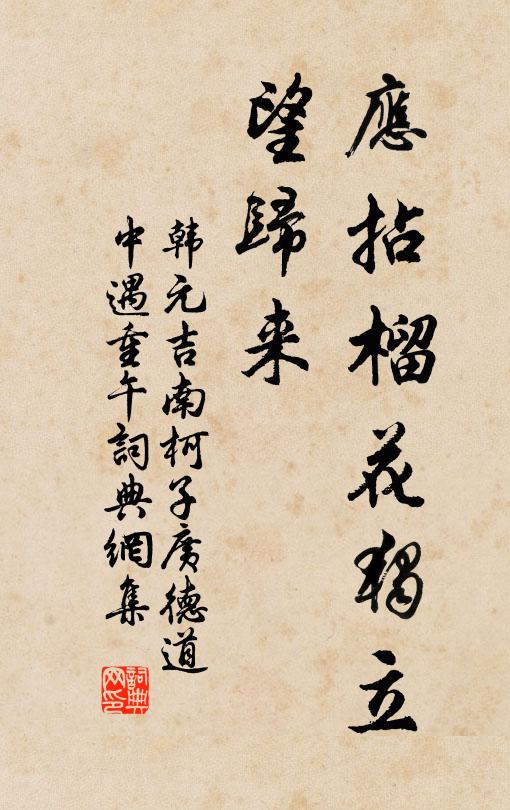 應拈榴花獨立
望歸来
韩元吉南柯子廣德道
中遇重午詞典網集
詞典网印